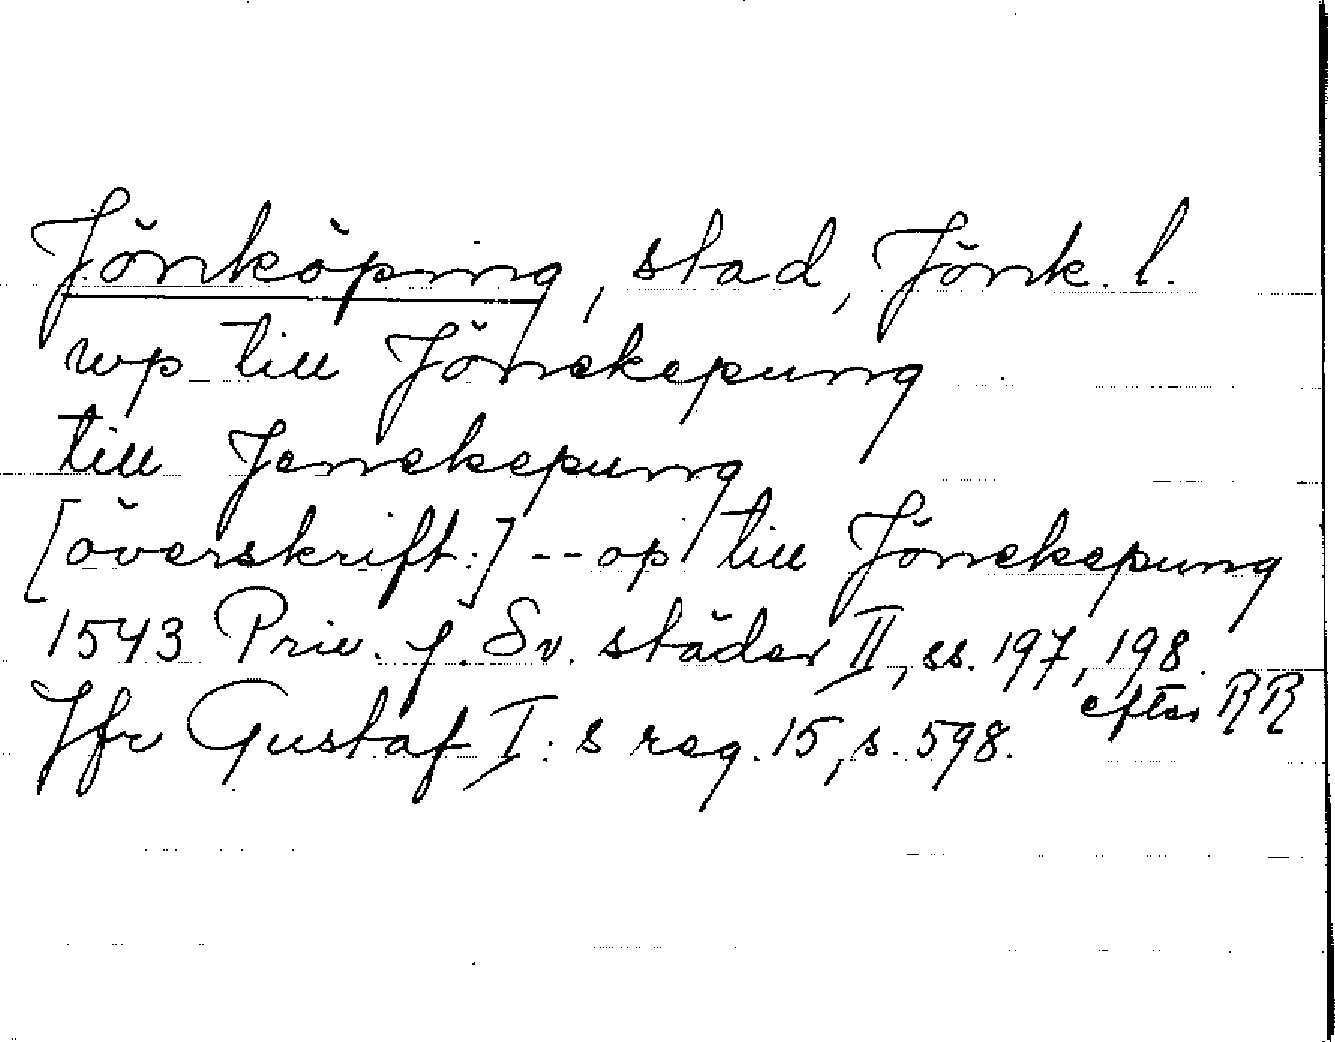 Jönköping, stad, Jönk. l.
wp till Jönekepung
till Jenekepung
[överskrift:] -- op till Jönekepung
1543 Priv. f. Sv. städer II, ss. 197, 198.
efter RR
Jfr Gustaf I:s reg. 15, s. 598.